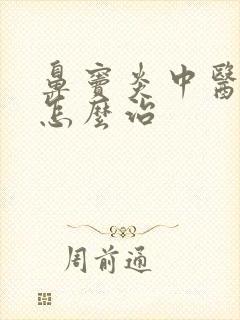 鼻竇炎中醫
怎麼治
周前通